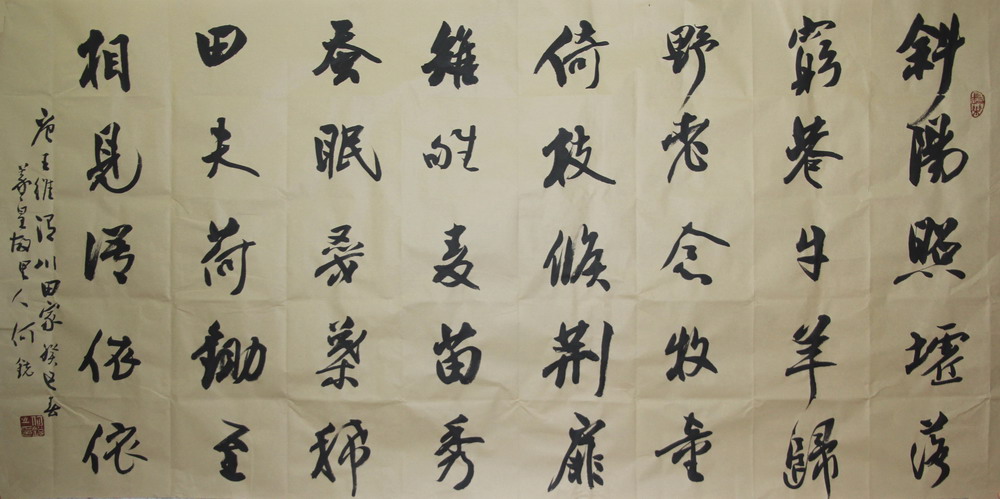 斜陽照墟落
窮巷牛羊歸
野老念牧童
倚杖候荆扉
雉雊麦苗秀
蚕眠桑葉稀
田夫荷鋤至
相見語依依
唐王維渭川田家癸巳春
羲皇故里人何